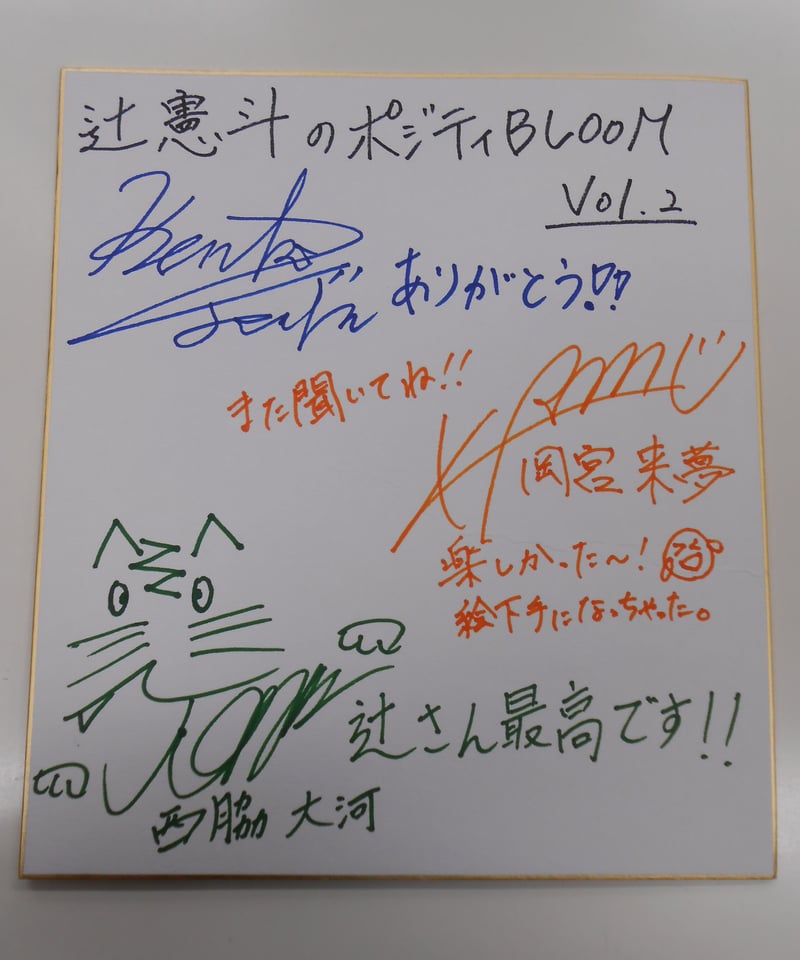 辻憲斗のポジティBLOOM
Vol.2
Kento
ありがとう!!
また聞いてね!!
岡宮来夢
楽しかった〜!
絵下手になっちゃった。
辻さん最高です!!
西脇 大河